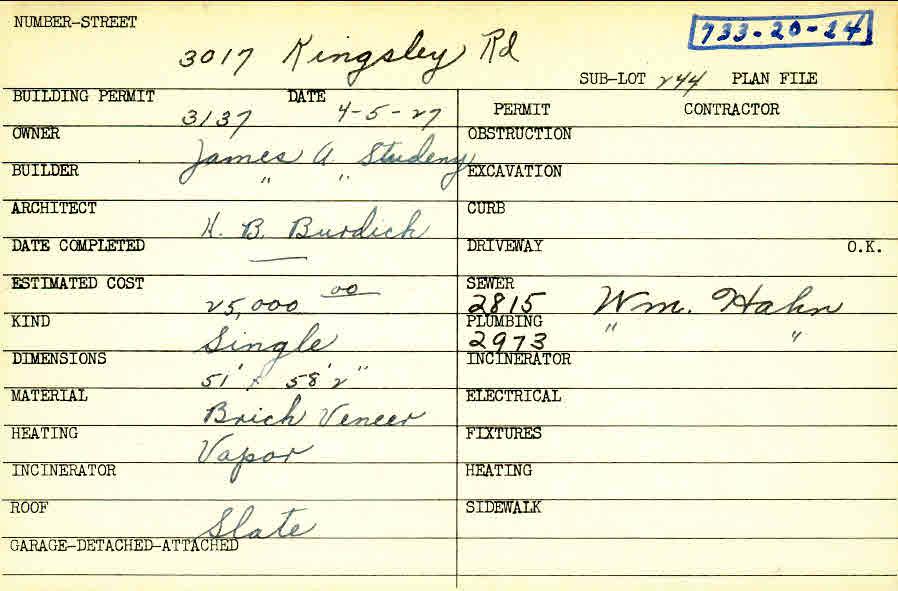 NUMBER-STREET
733-20-24
3017 Kingsley Rd
SUB-LOT 244 PLAN FILE
BUILDING PERMIT 3137 DATE 4-5-27
OWNER James A. Studeny
BUILDER " "
ARCHITECT H. B. Burdick
DATE COMPLETED —
ESTIMATED COST 25,000 00
KIND Single
DIMENSIONS 51' x 58'2"
MATERIAL Brick Veneer
HEATING Vapor
INCINERATOR
ROOF Slate
GARAGE-DETACHED-ATTACHED
PERMIT CONTRACTOR
OBSTRUCTION
EXCAVATION
CURB
DRIVEWAY O.K.
SEWER
2815 Wm. Hahn
PLUMBING
2973 " "
INCINERATOR
ELECTRICAL
FIXTURES
HEATING
SIDEWALK